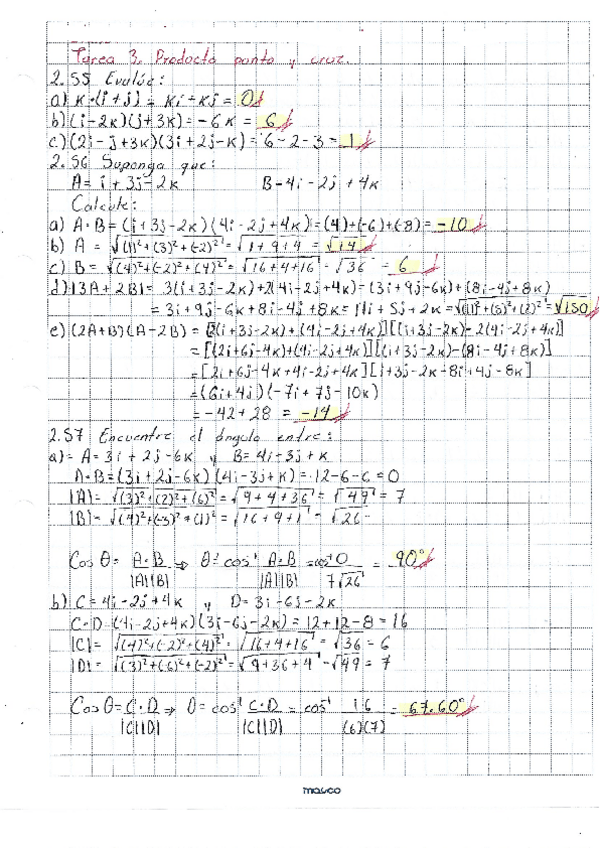 Tarea 3. Producto punto y cruz.
2.55 Evalúe:
a) K·(i+j) = Ki+Kj = 0
b) (i-2K)(j+3K) = -6K = 6
c) (2i-j+3K)(3i+2j-K) = 6-2-3 = 1
2.56 Suponga que:
A = i+3j-2K B=4i-2j+4K
Calcule:
a) A·B = (i+3j-2K)(4i-2j+4K) = (4)+(-6)+(-8) = -10
b) A = √(1)²+(3)²+(-2)² = √1+9+4 = √14
c) B = √(4)²+(-2)²+(4)² = √16+4+16 = √36 = 6
d) |3A+2B| = 3(i+3j-2K)+2(4i-2j+4K) = (3i+9j-6K)+(8i-4j+8K)
= 3i+9j-6K+8i-4j+8K = 11i+5j+2K = √(11)²+(5)²+(2)² = √150
e) (2A+B)(A-2B) = [2(i+3j-2K)+(4i-2j+4K)][(i+3j-2K)-2(4i-2j+4K)]
= [(2i+6j-4K)+(4i-2j+4K)][(i+3j-2K)-(8i-4j+8K)]
= [2i+6j-4K+4i-2j+4K][i+3j-2K-8i+4j-8K]
= (6i+4j)(-7i+7j-10K)
= -42+28 = -14
2.57 Encuentre el ángulo entre:
a) = A=3i+2j-6K y B=4i-3j+K
A·B = (3i+2j-6K)(4i-3j+K) = 12-6-6 = 0
|A| = √(3)²+(2)²+(6)² = √9+4+36 = √49 = 7
|B| = √(4)²+(-3)²+(1)² = √16+9+1 = √26
Cos θ = A·B ⇒ θ = cos⁻¹ A·B = cos⁻¹ 0 = 90°
|A||B| |A||B| 7√26
b) C=4i-2j+4K y D=3i-6j-2K
C·D = (4i-2j+4K)(3i-6j-2K) = 12+12-8 = 16
|C| = √(4)²+(-2)²+(4)² = √16+4+16 = √36 = 6
|D| = √(3)²+(-6)²+(-2)² = √9+36+4 = √49 = 7
Cos θ = C·D ⇒ θ = cos⁻¹ C·D = cos⁻¹ 16 = 67.60°
|C||D| |C||D| (6)(7)
masco